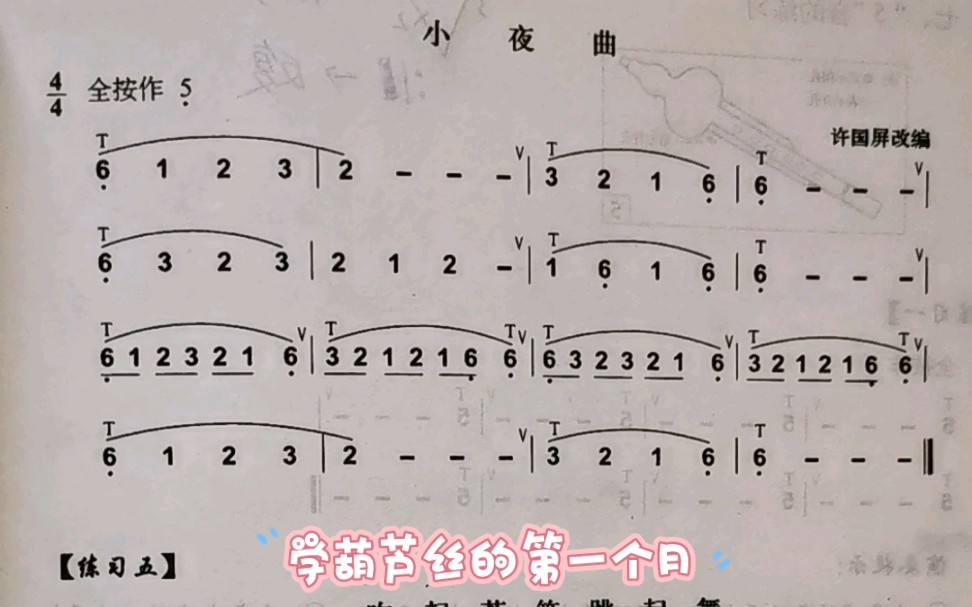 小 夜 曲
4/4 全按作 5̣
许国屏改编
T V T T V
6̣ 1 2 3 | 2 - - - | 3 2 1 6̣ | 6̣ - - - |
T V T T V
6̣ 3 2 3 | 2 1 2 - | 1 6̣ 1 6̣ | 6̣ - - - |
T V T T V T V T T V
6̣ 1 2 3 2 1 6̣ | 3 2 1 2 1 6̣ 6̣ | 6̣ 3 2 3 2 1 6̣ | 3 2 1 2 1 6̣ 6̣ |
T V T T
6̣ 1 2 3 | 2 - - - | 3 2 1 6̣ | 6̣ - - - ‖
学葫芦丝的第一个月
【练习五】